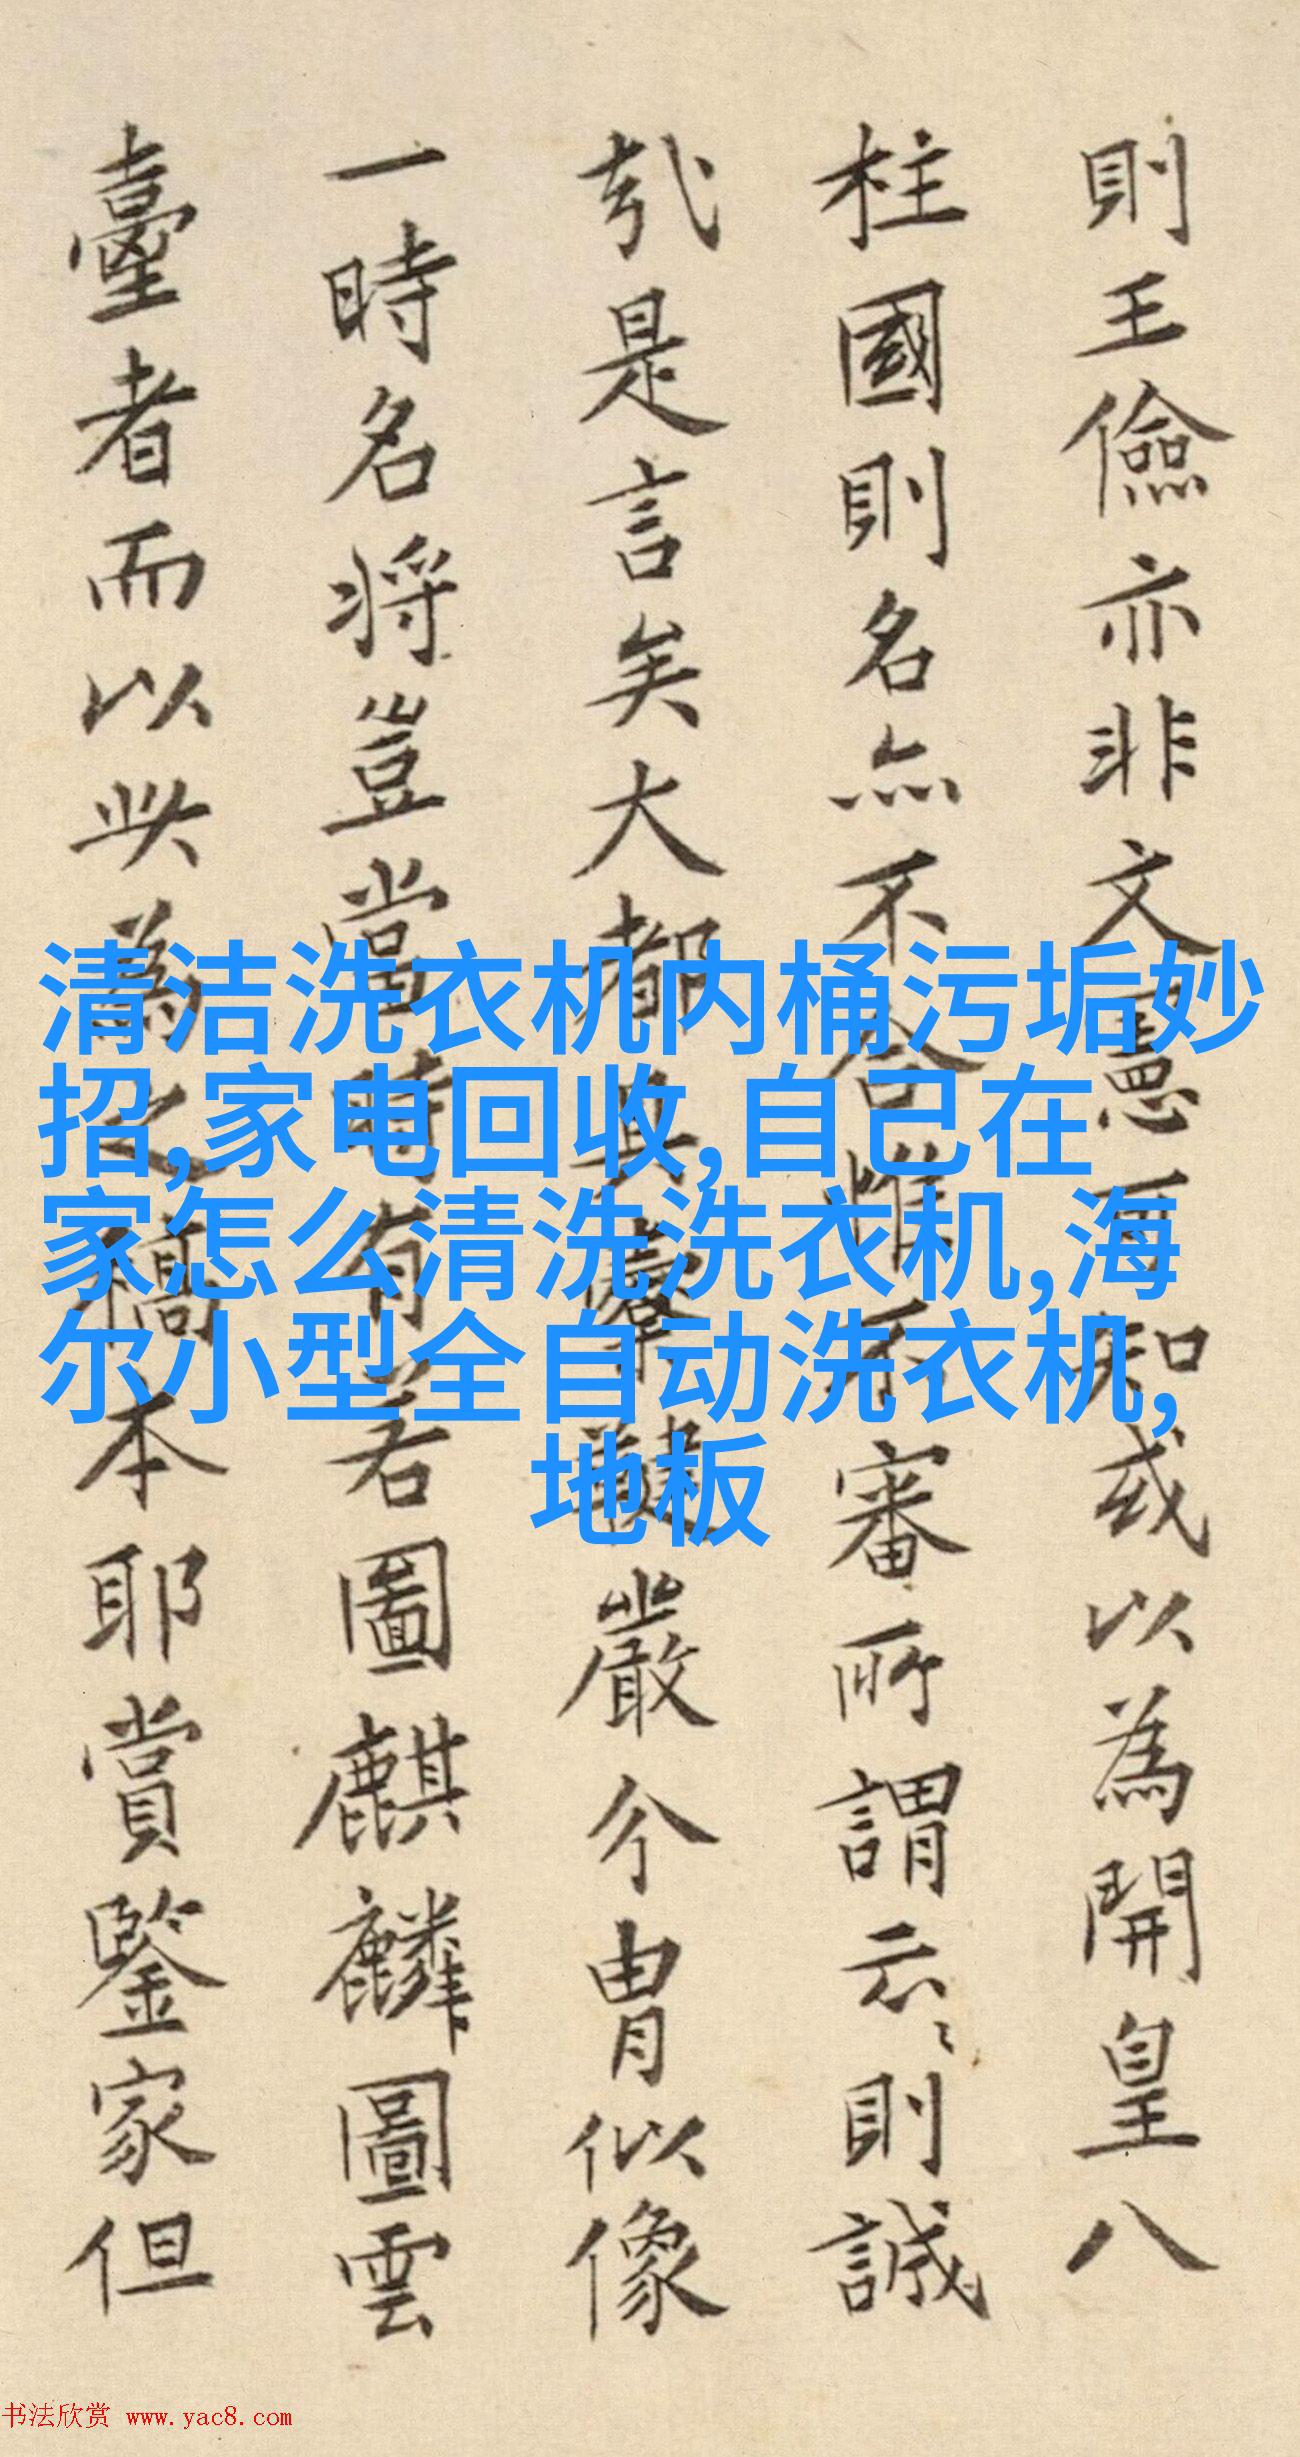 則王儉亦非文憲可知或以為開皇八
柱國則名亦不合惟不審所謂云〻則誠
哉是言矣大都其鞬嚴介胄似像
一時名將豈當時有若圖麒麟圖雲
臺者而以此為之稿本耶賞鑒家但
清洁洗衣机内桶污垢妙
招,家电回收,自己在
家怎么清洗洗衣机,海
尔小型全自动洗衣机,
地板
书法欣赏 www.yac8.com